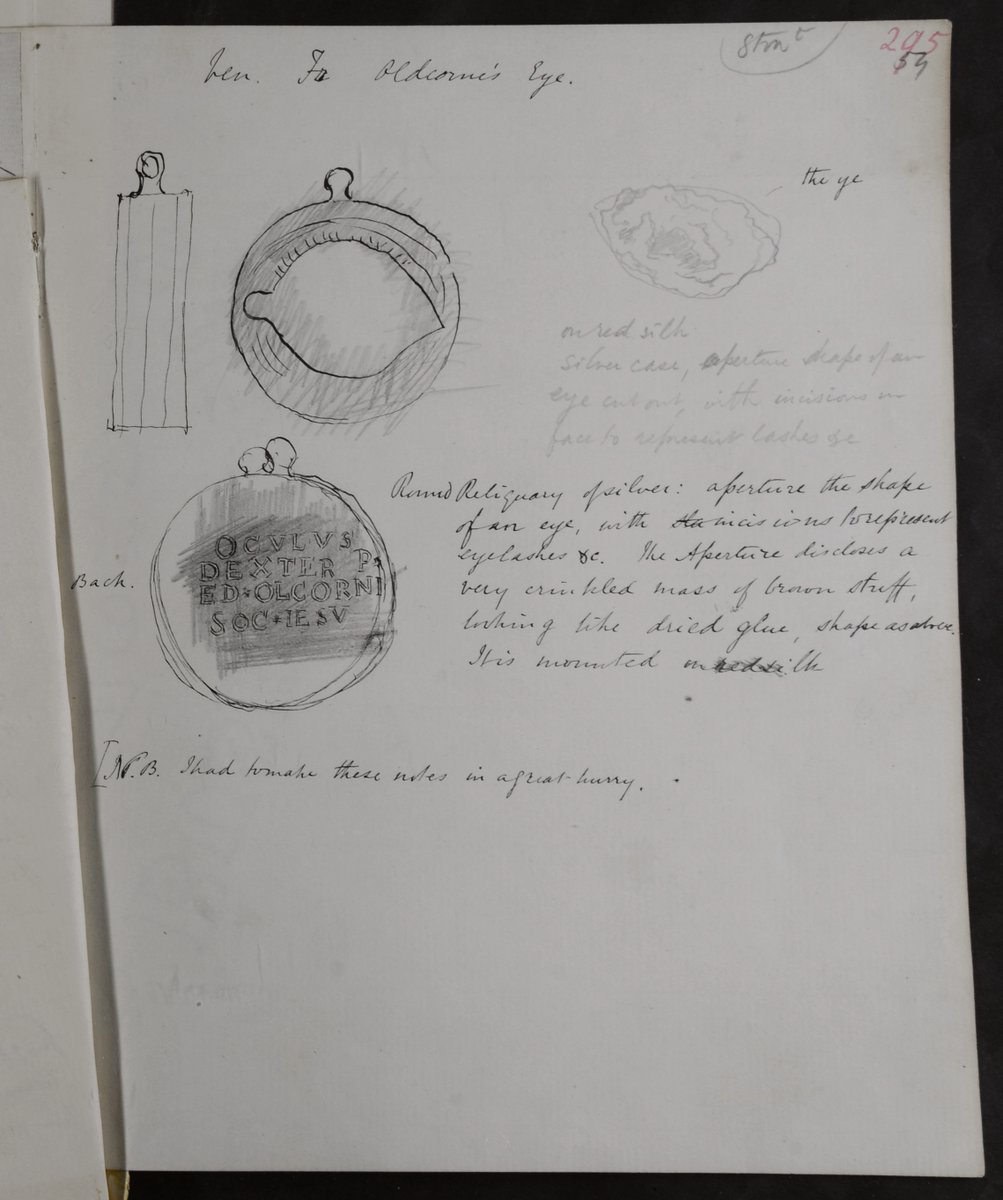 Ston^t
295
59
Ven. Fr Oldcorne's Eye.
the ye
on red silk
Silver case, aperture shape of an
eye cut out, with incisions on
face to represent lashes &c
Round Reliquary of silver: aperture the shape
of an eye, with incisions to represent
eyelashes &c. The Aperture discloses a
very crinkled mass of brown stuff,
looking like dried glue, shape as above.
It is mounted on red silk
Back.
OCULVS
DEXTER P.
ED·OLCORNI
SOC·IESV
[N.B. I had to make these notes in a great hurry.